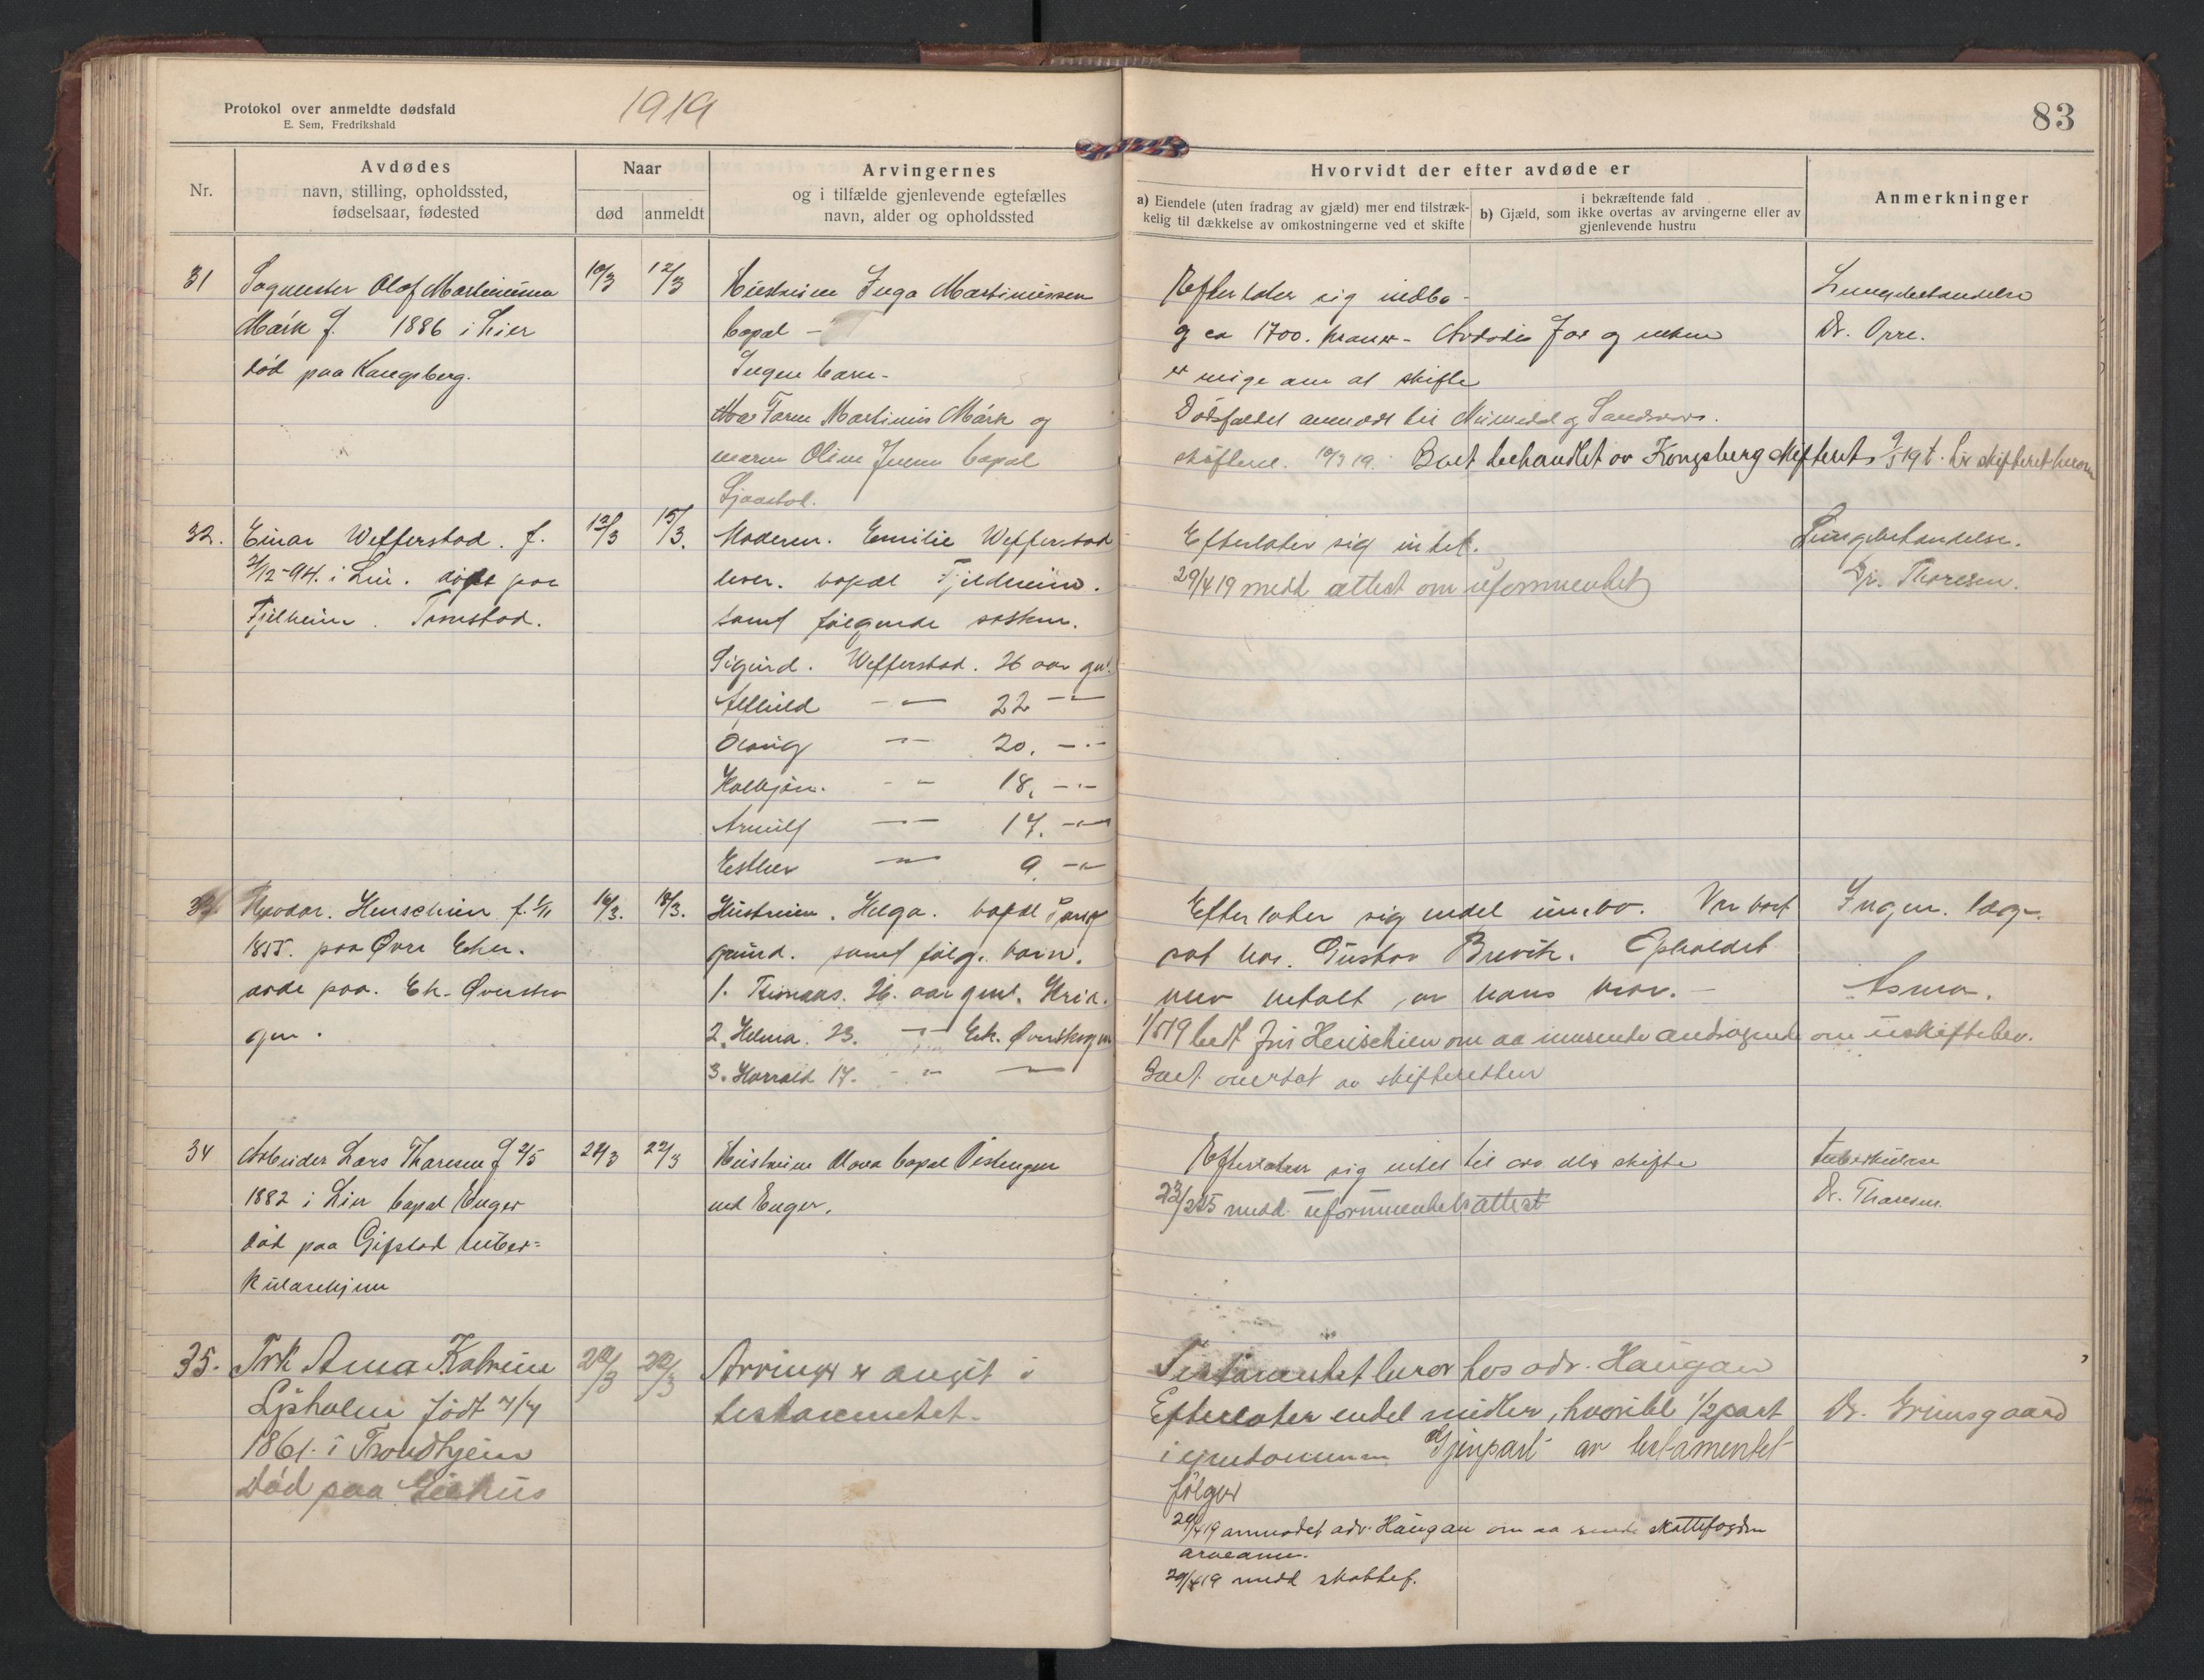 Protokol over anmeldte dødsfald
E. Sem, Fredrikshald
1919
83
Nr.
Avdødes
navn, stilling, opholdssted,
fødselsaar, fødested
Naar
død
anmeldt
Arvingernes
og i tilfælde gjenlevende egtefælles
navn, alder og opholdssted
Hvorvidt der efter avdøde er
a) Eiendele (uten fradrag av gjæld) mer end tilstræk-
kelig til dækkelse av omkostningerne ved et skifte
i bekræftende fald
b) Gjæld, som ikke overtas av arvingerne eller av
gjenlevende hustru
Anmerkninger
31
Sagmester Olof Martinussen
Mørk f. 1886 i Lier
død paa Kongsberg.
10/3
12/3
Hustruen Inga Martinussen
bopæl
Ingen barn
Faren Martinus Mørk og
moren Oline Jensen bopæl
Sjaastad.
Efterlater sig indbo
og ca 1700. kroner - Avdødes far og enken
er enige om at skifte
Dødsfaldet anmeldt til Numedal og Sandsvær
skifteret. 10/3 19. Boet behandlet av Kongsberg skifteret,
Lungebetændelse
Dr. Opre.
32.
Einar Wefferstad. f.
2/12-94. i Lier. døde paa
Fjelheim. Tomstad.
12/3
15/3.
Moderen. Emilie Wefferstad
lever. bopæl Fjeldheim.
samt følgende søsken.
Sigurd. Wefferstad. 26 aar gml.
Alfhild - " - 22 - " -
Solveig - " - 20. - " -
Halbjørn. - " - 18. - " -
Arnulf - " - 17. - " -
Esther - " - 9. - " -
Efterlater sig intet.
29/4 19 medd attest om uformuenhet
Lungebetændelse.
Dr. Thoresen.
33.
Henschien f. 1/11
1855. paa Øvre Eker.
døde paa. Ek. Øverskogen.
16/3.
18/3.
Hustruen. Helga. bopæl
grund. samt følg. barn.
1. Thomas. 26. aar gml.
2. Helma. 23. - " - Ek. Øverskogen
3. Harrald 17. - " -
Efterlater sig endel innbo. Var bort
sat hos. Gustav Brevik. Opholdet
blev betalt av hans bror.
1/5 19 bedt fru Henschien om aa innsende andragende om uskiftebev.
Boet overtat av skifteretten
Ingen. læge.
Asma.
34
Arbeider Lars Thoresen f 2/5
1882 i Lier bopæl Enger
død paa Gifstad tuber=
kulosehjem
21/3
22/3
Hustruen bopæl Østengen
ved Enger.
Efterlater sig intet til arv eller skifte
23/2 25 medd. uformuenhetsattest
tuberkulose
Dr. Thoresen.
35.
Frk Anna Katrine
Lysholm født 7/7
1861. i Trondhjem
Død paa
20/3
22/3
Arvinger er angit i
testamentet.
Testamentet beror hos adv. Haugan
Efterlater endel midler, hvoriblt 1/2 part
i eiendommen Gjenpart av testamentet
følger
29/4 19 anmodet adv. Haugan om aa sende skattefogden
arveanm.
29/4 19 medd skattef.
Dr. Grimsgaard